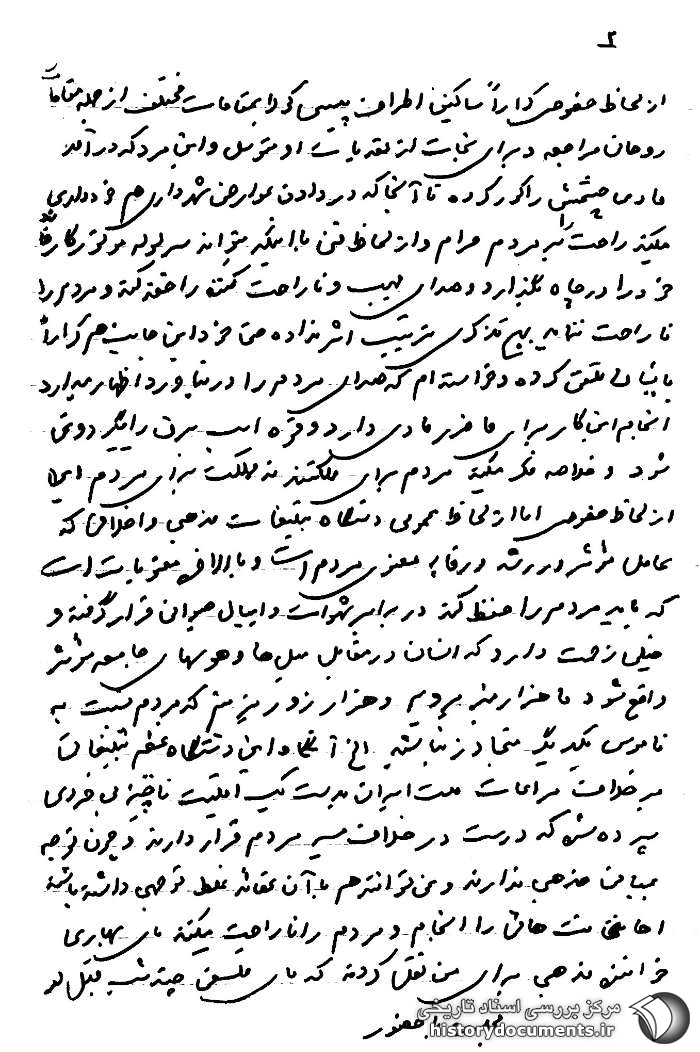 ۲
از لحاظ خصوصی کراراً ساکنین اطراف پپسی کولا بمقامات مختلف از جمله مقامات
روحانی مراجعه و برای نجات از تعدیات او متوسل و این مرد که درآمد
مادی چشمش را کور کرده تا آنجا که در دادن عوارض شهرداری هم خودداری
میکند راحت را بر مردم حرام و از لحاظ فنی با اینکه میتواند سر لوله موتور کارخانه
خود را در چاه بگذارد و صدای مهیب و ناراحت کننده را خفه کند و مردم را
ناراحت ننماید هیچ تذکری ترتیب اثر نداده حتی خود اینجانب هم کراراً
بایشان تلفن کرده و خواسته‌ام که صدای مردم را در نیاورد اظهار میدارد
انجام این کار برای ما ضرر مادی دارد و قوه اسب برق را بایستی
شود و خلاصه فکر میکنید مردم برای مملکتند نه مملکت برای مردم این
از لحاظ خصوصی اما از لحاظ عمومی دستگاه تبلیغات مذهبی و اخلاقی که
عامل مؤثر در رشد و رفاه معنوی مردم است و بالاخره معنویات است
که باید مردم را حفظ کند در برابر شهوات و امیال حیوانی قرار گرفته و
خیلی زحمت دارد که انسان در مقابل میل‌ها و هوسهای جامعه مؤثر
واقع شود ما هزار منبر برویم و هزار زور بزنیم که مردم نسبت به
ناموس یکدیگر متجاوز نباشند الخ آنگاه این دستگاه عظیم تبلیغات
بر خلاف مراعات ملت ایران بدست یک اقلیت ناچیز بی‌خردی
سپرده شده که درست در خلاف مسیر مردم قرار دارند و چون توجه
بمبانی مذهبی ندارند و نمی‌توانند هم با آن عقائد غلط توجهی داشته باشند
احساسات ها را انجام و مردم را ناراحت میکنند آقای بهاری
خواننده مذهبی برای من نقل کردند که آقای فلسفی چند شب قبل در
مجلس با حضور
مرکز بررسی اسناد تاریخی
historydocuments.ir